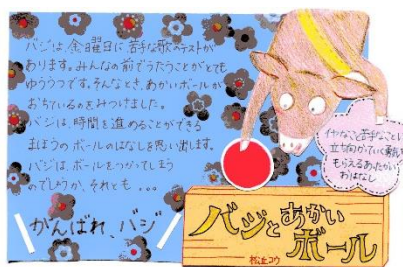 バジは、金曜日に苦手な歌のテストが
あります。みんなの前でうたうことがとても
ゆううつです。そんなとき、あかいボールが
おちているのをみつけました。
バジは、時間を進めることができる
まほうのボールのはなしを思い出します。
バジは、ボールをつかってしまう
のでしょうか、それとも...
がんばれ、バジ
イヤなこと苦手なことに
立ち向かっていく勇気を
もらえるあったかい
おはなし
バジとあかい
ボール